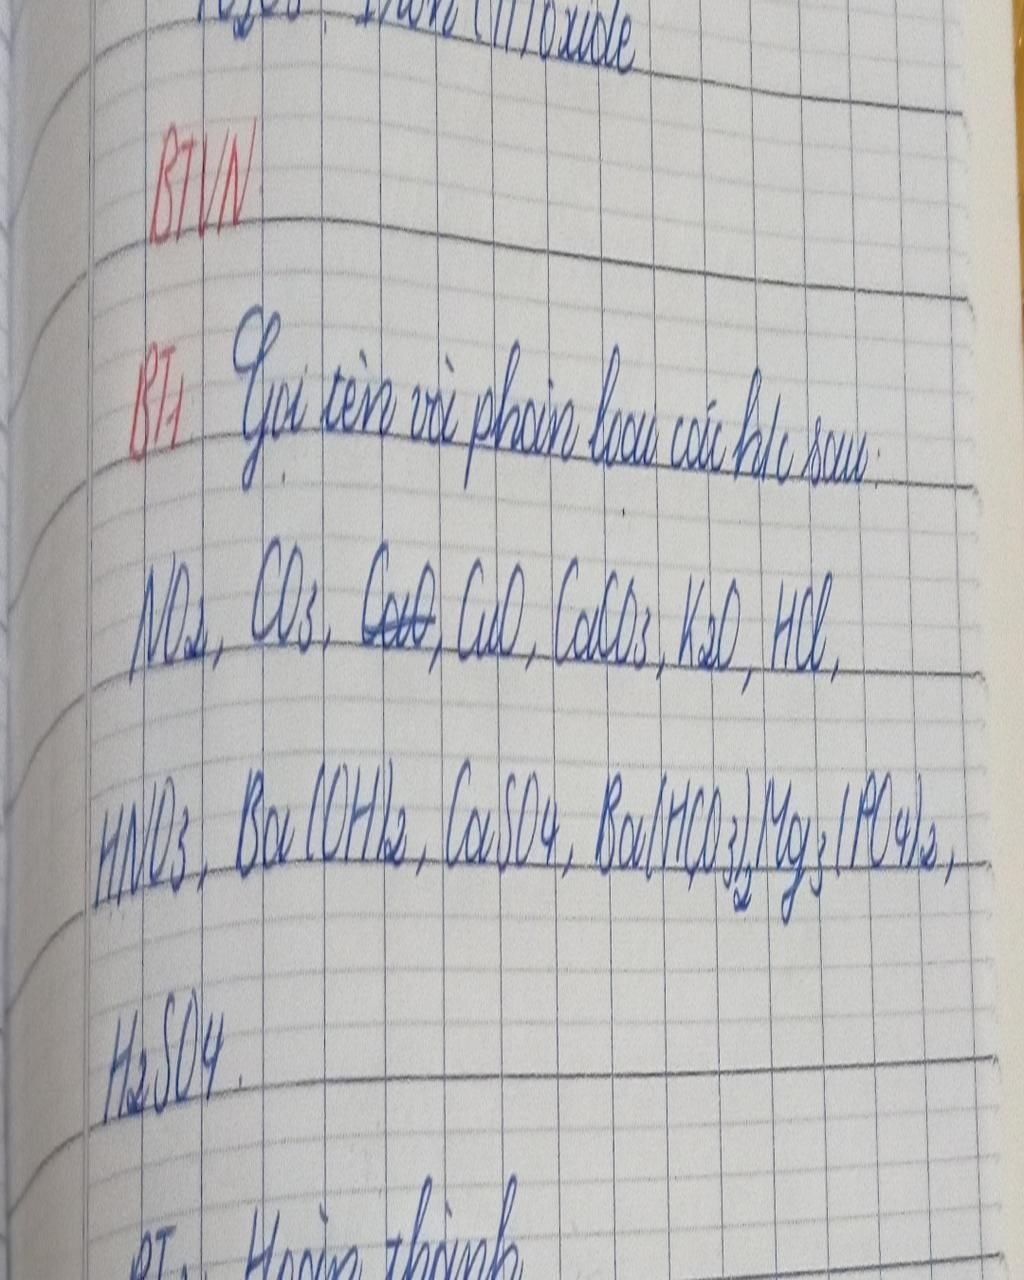 (III) oxide
BTVN
BT1 Gọi tên và phân loại các h/c sau:
NO2, CO3, CuO, CaCO3, K2O, HCl,
HNO3, Ba(OH)2, CaSO4, Ba(HCO3)2, Mg3(PO4)2,
H2SO4.
BT Hoàn thành